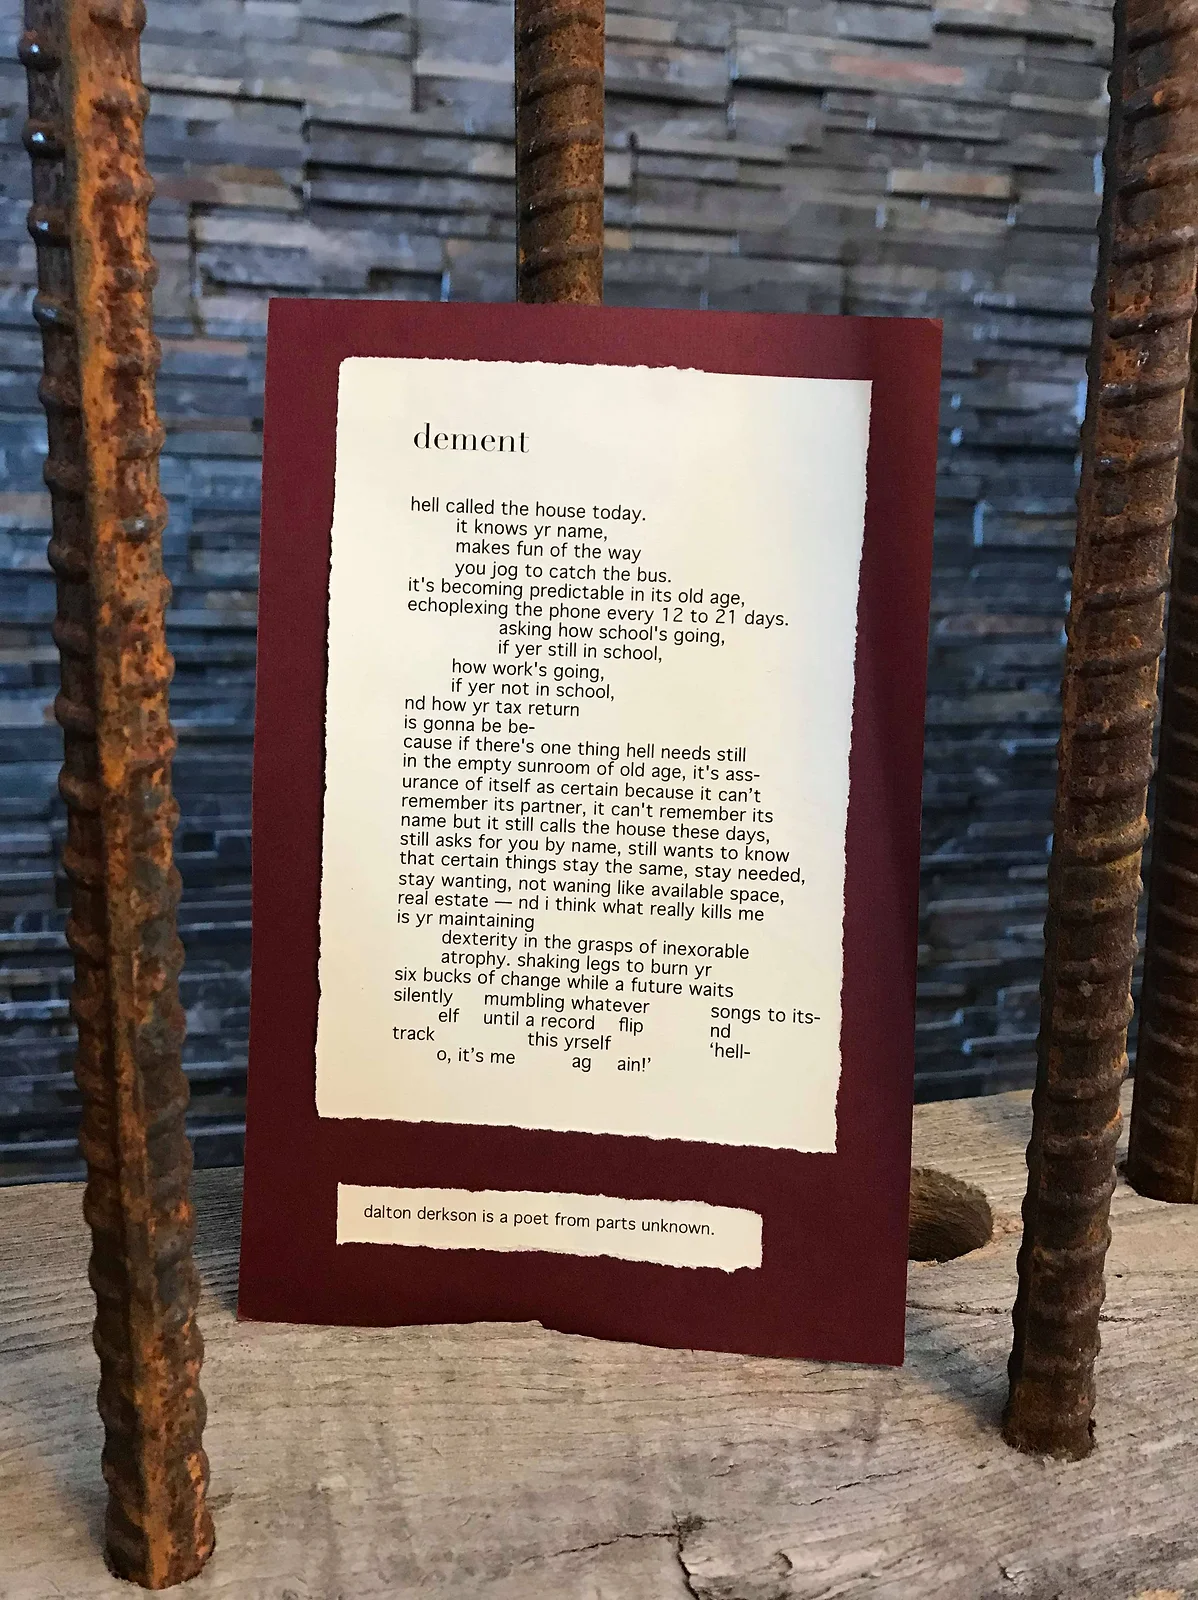 dement
hell called the house today.
it knows yr name,
makes fun of the way
you jog to catch the bus.
it's becoming predictable in its old age,
echoplexing the phone every 12 to 21 days.
asking how school's going,
if yer still in school,
how work's going,
if yer not in school,
nd how yr tax return
is gonna be be-
cause if there's one thing hell needs still
in the empty sunroom of old age, it's ass-
urance of itself as certain because it can't
remember its partner, it can't remember its
name but it still calls the house these days,
still asks for you by name, still wants to know
that certain things stay the same, stay needed,
stay wanting, not waning like available space,
real estate — nd i think what really kills me
is yr maintaining
dexterity in the grasps of inexorable
atrophy. shaking legs to burn yr
six bucks of change while a future waits
silently mumbling whatever songs to its-
elf until a record flip nd
track this yrself ‘hell-
o, it's me ag ain!’
dalton derkson is a poet from parts unknown.